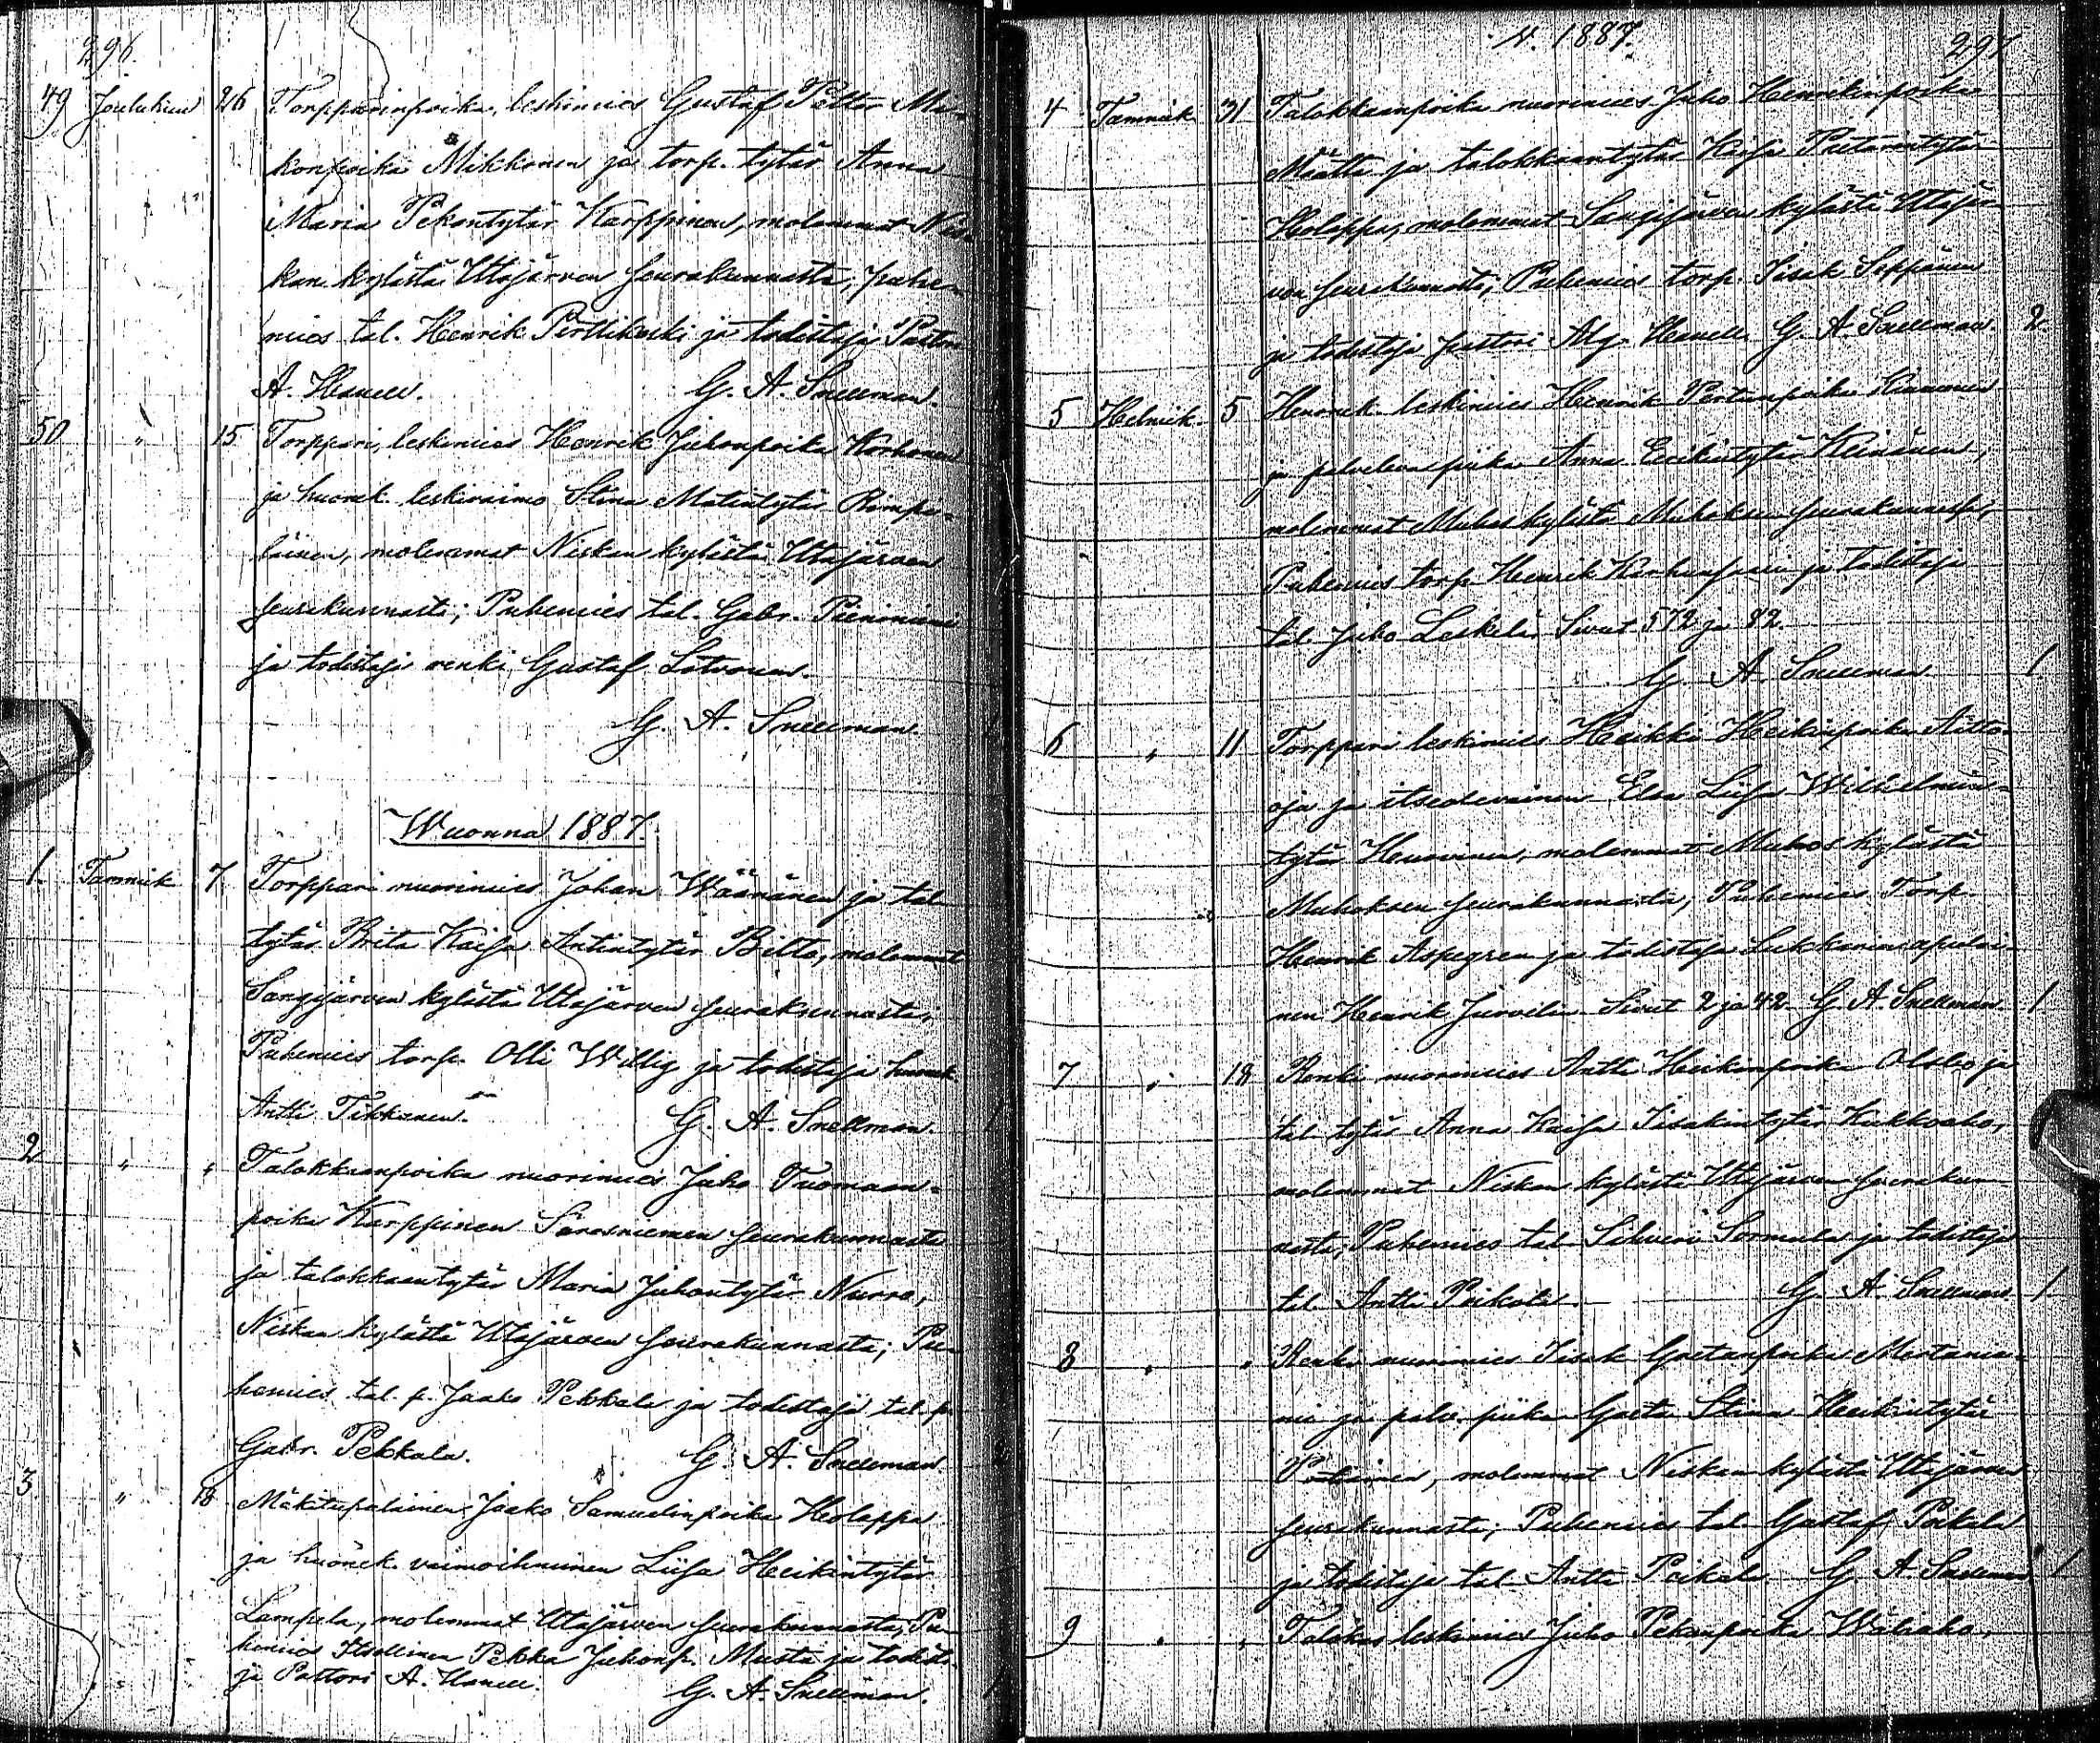 296.
49 Joulukuu 26 Torpparinpoika, leskimies Gustaf Petter Mar-
konpoika Mikkonen ja torp. tytär Anna
Maria Pekantytär Karppinen, molemmat Nis-
kan kylästä Utajärven seurakunnasta; puhe-
mies tal. Henrik Perttikoski ja todistaja Pastori
A. Hanell. G. A. Snellman.
50 " 15 Torppari, leskimies Henrik Juhonpoika Korhonen
ja huonek. leskivaimo Stina Matintytär Rimpi-
läinen, molemmat Niskan kylästä Utajärven
seurakunnasta; Puhemies tal. Gabr. Pieniniemi
ja todistaja renki Gustaf Latvonen.
G. A. Snellman.
Wuonna 1887.
1. Tammik 7 Torppari nuorimies Johan Wäänänen ja tal
tytär Brita Kaisa Antintytär Pelto, molemmat
Sangijärven kylästä Utajärven seurakunnasta;
Puhemies torp. Olli Willig ja todistaja huonek.
Antti Tikkanen. G. A. Snellman. 1
2 " " Talokkaanpoika nuorimies Juho Tuomaan-
poika Karppinen Säräisniemen seurakunnasta
ja talokkaantytär Maria Juhontytär Nurro,
Niskan kylästä Utajärven seurakunnasta; Pu-
hemies tal. p. Jaako Pekkala ja todistaja tal. p.
Gabr. Pekkala. G. A. Snellman.
3 " 18 Mäkitupalainen Jaako Samuelinpoika Holappa
ja huonek. vaimoihminen Liisa Heikintytär
Lampela, molemmat Utajärven seurakunnasta; Pu-
hemies Itsellinen Pekka Juhonp. Musta ja todista-
ja Pastori A. Hanell. G. A. Snellman.
v. 1887. 297
4 Tammik 31 Talokkaanpoika nuorimies Juho Henrikinpoika
Määttä ja talokkaantytär Kaisa Pietarintytär
Holappa, molemmat Sangijärven kylästä Utajär-
ven seurakunnasta; Puhemies torp. Iisak Seppänen
ja todistaja pastori Alg. Hanell. G. A. Snellman. 2
5 Helmik. 5 Huonek. leskimies Henrik Pertunpoika Kinnunen
ja palveleva piika Anna Eerikintytär Keinänen,
molemmat Muhos kylästä Muhoksen seurakunnassa;
Puhemies torp. Henrik Karhunsaari ja todistaja
tal. Juho Leskelä. Sivut 572 ja 82.
G. A. Snellman. 1
6 " 11 Torppari leskimies Heikki Heikinpoika Aitto-
oja ja itsellinen Elsa Liisa Wilhelmin-
tytär Heusvinen, molemmat Muhos kylästä
Muhoksen seurakunnasta; Puhemies Torp.
Henrik Aspegren ja todistaja Lukkarin apulai-
nen Henrik Jurvelin. Sivut 2 ja 42. G. A. Snellman. 1
7 " 18 Renki nuorimies Antti Heikinpoika Ahlo ja
tal. tytär Anna Kaisa Iisakintytär Kukkoaho,
molemmat Niskan kylästä Utajärven seurakun-
nasta; Puhemies tal. Silveri Sormula ja todistaja
tal. Antti Poikola. G. A. Snellman 1
8 " " Renki nuorimies Iisak Gustanpoika Mertanie-
mi ja palv. piika Greta Stina Heikintytär
molemmat Niskan kylästä Utajärven
seurakunnasta; Puhemies tal. Gustaf Poikala
ja todistaja tal. Antti Poikala. G. A. Snellman 1
9 " " Talokas leskimies Juho Pekanpoika Wäliaho,